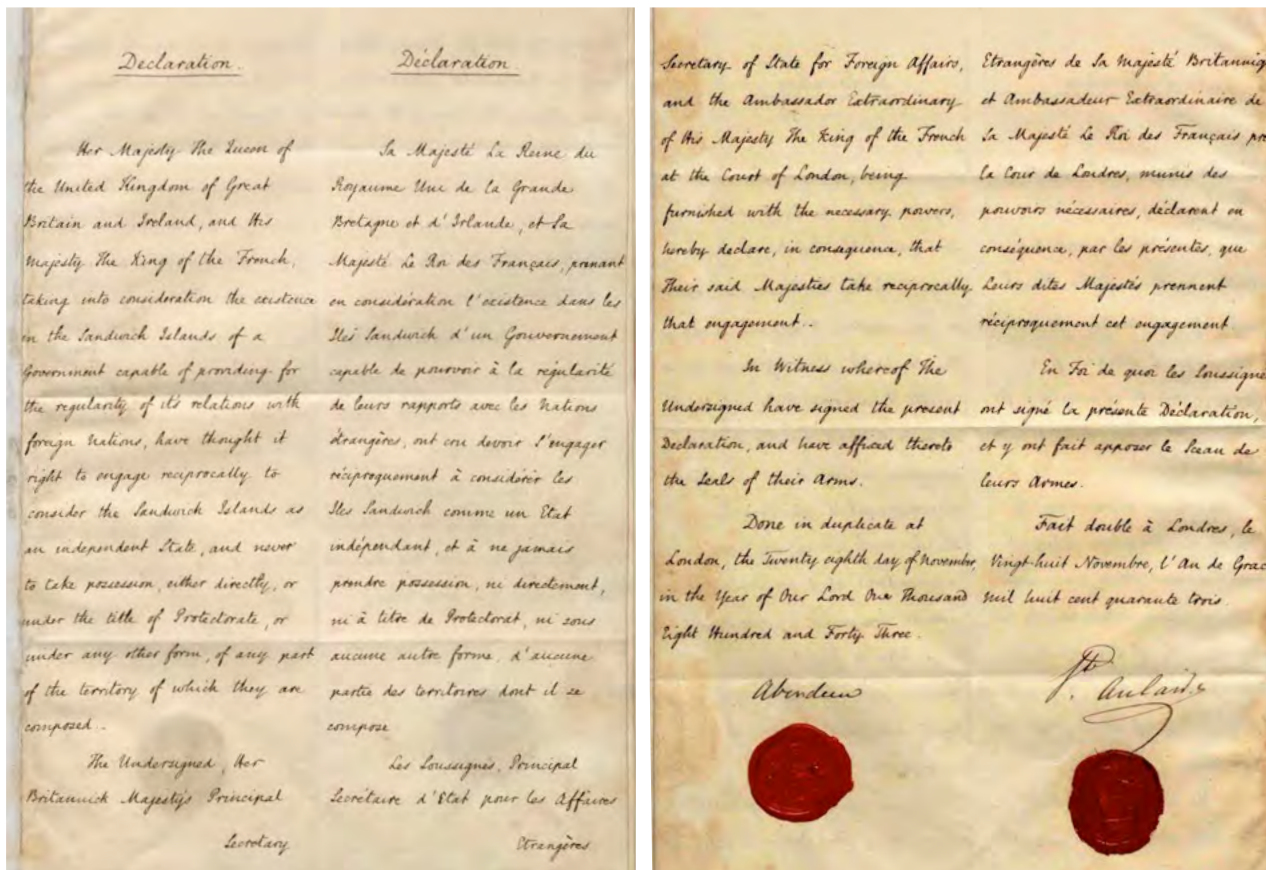 Declaration.
Her Majesty The Queen of
the United Kingdom of Great
Britain and Ireland, and His
Majesty The King of the French,
taking into consideration the existence
in the Sandwich Islands of a
Government capable of providing for
the regularity of its relations with
foreign Nations, have thought it
right to engage reciprocally to
consider the Sandwich Islands as
an independent State, and never
to take possession, either directly, or
under the title of Protectorate, or
under any other form, of any part
of the territory of which they are
composed..
The Undersigned, Her
Britannick Majesty's Principal
Secretary
Déclaration
Sa Majesté La Reine du
Royaume Uni de la Grande
Bretagne et d'Irlande, et Sa
Majesté Le Roi des Français, prenant
en considération l'existence dans les
Iles Sandwich d'un Gouvernement
capable de pourvoir à la régularité
de leurs rapports avec les Nations
étrangères, ont cru devoir s'engager
réciproquement à considérer les
Iles Sandwich comme un Etat
indépendant, et à ne jamais
prendre possession, ni directement,
ni à titre de Protectorat, ni sous
aucune autre forme, d'aucune
partie des territoires dont il se
compose
Les Soussignés, Principal
Secrétaire d'Etat pour les Affaires
Etrangères
Secretary of State for Foreign Affairs,
and the Ambassador Extraordinary
of His Majesty The King of the French
at the Court of London, being
furnished with the necessary powers,
hereby declare, in consequence, that
Their said Majesties take reciprocally
that engagement..
In Witness whereof The
Undersigned have signed the present
Declaration, and have affixed thereto
the Seals of their Arms.
Done in duplicate at
London, the Twenty eighth day of November,
in the Year of Our Lord One Thousand
Eight Hundred and Forty Three.
Aberdeen
Etrangères de Sa Majesté Britanniq
et Ambassadeur Extraordinaire de
Sa Majesté Le Roi des Français prè
la Cour de Londres, munis des
pouvoirs nécessaires, déclarent en
conséquence, par les présentes, que
Leurs dites Majestés prennent
réciproquement cet engagement.
En Foi de quoi les Soussigné
ont signé la présente Déclaration,
et y ont fait apposer le Sceau de
leurs Armes.
Fait double à Londres, le
Vingt-huit Novembre, l'An de Grac
mil huit cent quarante trois.
St. Aulaire